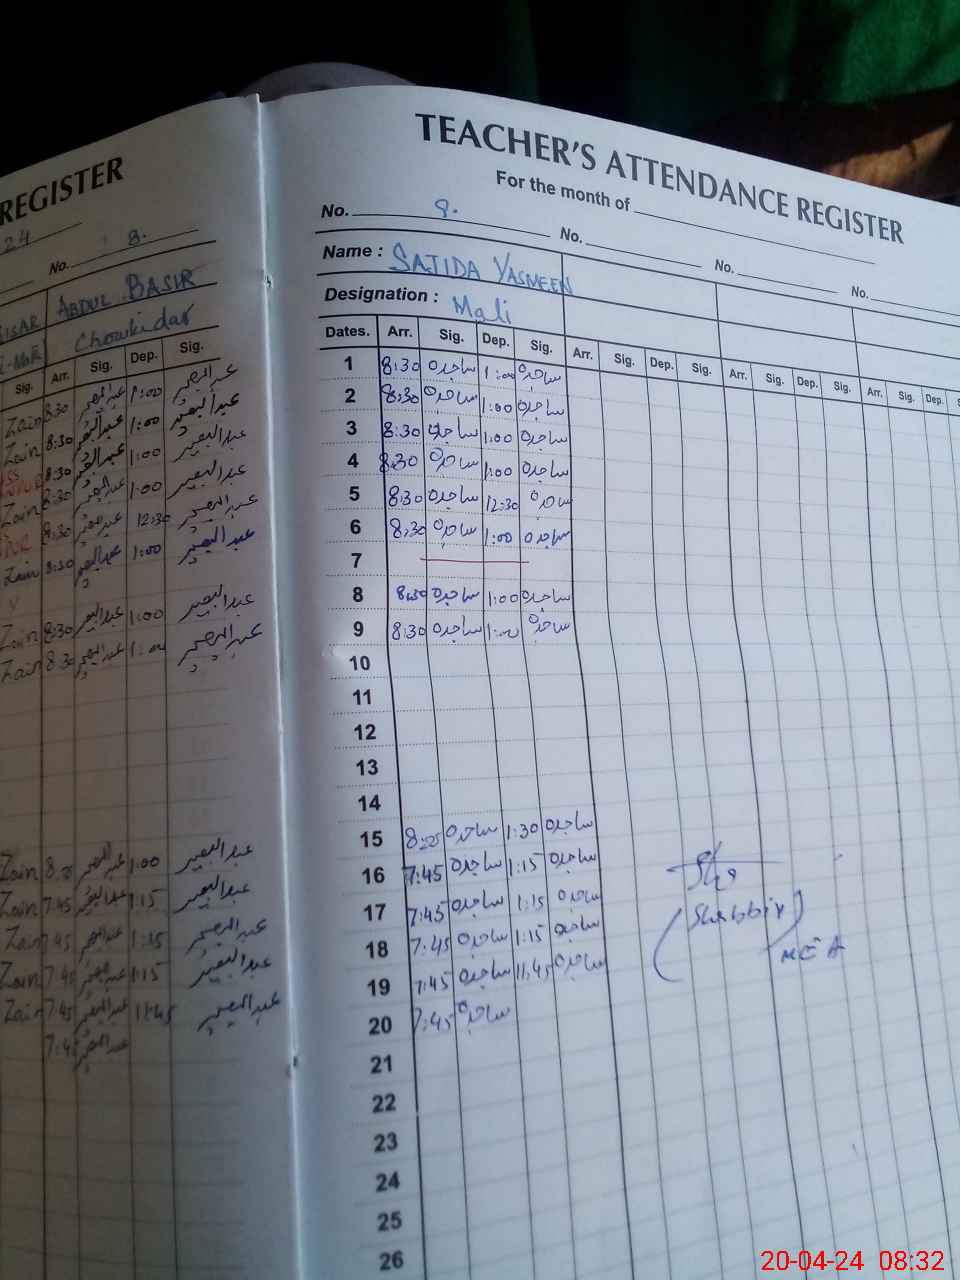 REGISTER
24
No. 8.
ABDUL BASIR
Chowkidar
Sig. Arr. Sig. Dep. Sig.
Zain 8:30 عبدالبصیر 1:00 عبدالبصیر
Zain 8:30 عبدالبصیر 1:00 عبدالبصیر
8:30 عبدالبصیر 1:00 عبدالبصیر
Zain 8:30 عبدالبصیر 1:00 عبدالبصیر
8:30 عبدالبصیر 12:30 عبدالبصیر
Zain 8:30 عبدالبصیر 1:00 عبدالبصیر
Zain 8:30 عبدالبصیر 1:00 عبدالبصیر
Zain 8:30 عبدالبصیر 1:00 عبدالبصیر
Zain عبدالبصیر 1:00 عبدالبصیر
Zain 7:45 عبدالبصیر 1:15 عبدالبصیر
Zain 7:45 عبدالبصیر 1:15 عبدالبصیر
Zain 7:45 عبدالبصیر 1:15 عبدالبصیر
Zain 7:45 عبدالبصیر 11:45 عبدالبصیر
7:45 عبدالبصیر
TEACHER'S ATTENDANCE REGISTER
For the month of
No. 8. No. No. No.
Name : SAJIDA YASMEEN
Designation : Mali
Dates. Arr. Sig. Dep. Sig. Arr. Sig. Dep. Sig. Arr. Sig. Dep. Sig. Arr. Sig. Dep.
1 8:30 ساجدہ 1:00 ساجدہ
2 8:30 ساجدہ 1:00 ساجدہ
3 8:30 ساجدہ 1:00 ساجدہ
4 8:30 ساجدہ 1:00 ساجدہ
5 8:30 ساجدہ 12:30 ساجدہ
6 8:30 ساجدہ 1:00 ساجدہ
7
8 8:30 ساجدہ 1:00 ساجدہ
9 8:30 ساجدہ 1:00 ساجدہ
10
11
12
13
14
15 ساجدہ 1:30 ساجدہ
16 7:45 ساجدہ 1:15 ساجدہ
17 7:45 ساجدہ 1:15 ساجدہ
18 7:45 ساجدہ 1:15 ساجدہ
19 7:45 ساجدہ 11:45 ساجدہ
20 7:45 ساجدہ
21
22
23
24
25
26
(Shabbir)
MEA
20-04-24 08:32